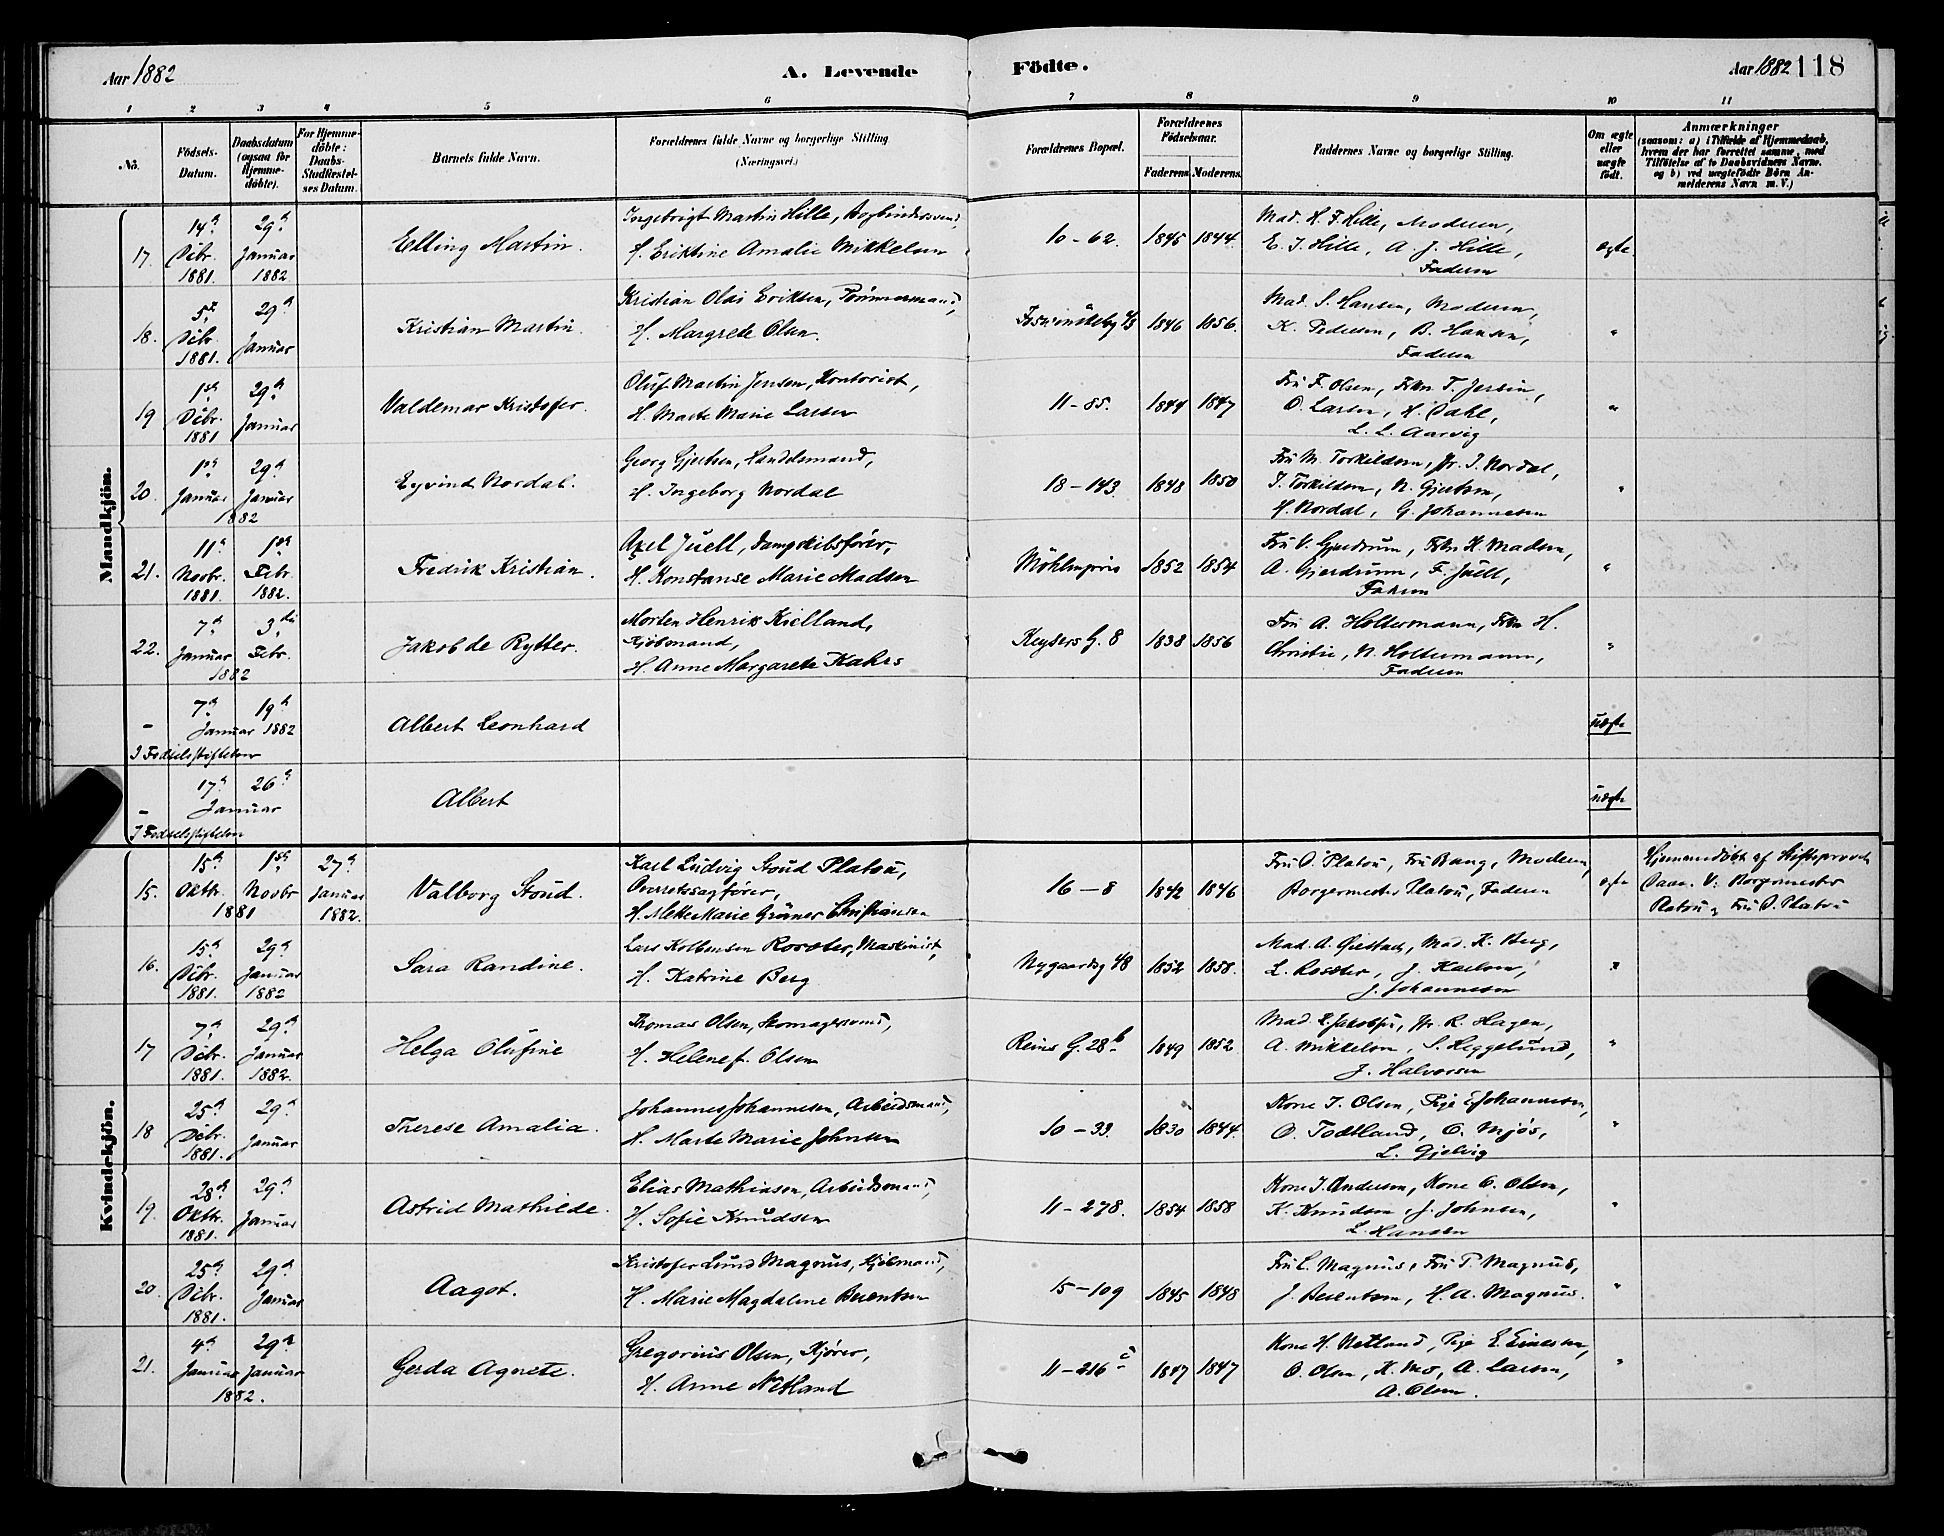 Aar 1882
A. Levende Födte.
Aar 1882 118
1 2 3 4 5 6 7 8 9 10 11
No.
Födsels-Datum.
Daabsdatum (ogsaa for Hjemme-döbte).
For Hjemme-döbte: Daabs-Stadfæstel-ses Datum.
Barnets fulde Navn.
Forældrenes fulde Navne og borgerlige Stilling (Næringsvei.)
Forældrenes Bopæl.
Forældrenes Födselsaar.
Faderens. Moderens.
Faddernes Navne og borgerlige Stilling.
Om ægte eller uægte födt.
Anmærkninger
(saasom: a) i Tilfælde af Hjemmedaab, hvem der har forrettet samme, med Tilföielse af to Daabsvidners Navne. og b) ved uægtefödte Börn An-melderens Navn m. V.)
Mandkjön.
17. 14de Dcbr. 1881. 29de Januar 1882 Elling Martin.
Ingebrigt Martin Hille,
H. Eriktine Amalie Mikkelsen
10-62. 1845 1844.
Mad. H. F. Hille, Moderen,
E. I. Hille, A. J. Hille,
Faderen
ægte
18. 5te Dcbr. 1881. 29de Januar Kristian Martin.
Kristian Olai Eriksen, Tömmermand,
H. Margrete Olsen.
1846 1856.
Mad. S. Hansen, Moderen,
K. Pedersen, B. Hansen,
Faderen
"
19 1ste Dcbr. 1881 29de Januar Valdemar Kristofer.
Oluf Martin Jensen, Kontorist,
H. Marte Marie Larsen
11-85. 1844 1847
Fru F. Olsen, Frkn T. Jersin,
O. Larsen, H. Dahl,
L. L. Aarvig
"
20. 1ste Januar 29de Januar 1882 Eyvind Nordal.
Georg Gjertsen, Handelsmand,
H. Ingeborg Nordal
18-143. 1848 1850
Fru M. Torkildsen, Jfr. I. Nordal,
I. Torkildsen, N. Gjertsen,
H. Nordal, G. Johannesen
"
21. 11te Novbr. 1881 1ste Febr. 1882. Fredrik Kristian.
Axel Juell, Dampskibsförer,
H. Konstanse Marie Madsen
Möhlenpris 1852 1854
Fru V. Gjerdrum, Frkn K. Madsen,
A. Gjerdrum, F. Juell,
"
22. 7de Januar 3die Febr. 1882 Jakob de Rytter.
Morten Henrik Kielland,
Kjöbmand,
H. Anne Margarete Kahrs
Keysers G. 8 1838 1856
Fru A. Holtermann, Frkn H.
Christie, N. Holtermann,
Faderen
"
- 7de 19de Januar 1882 Albert Leonhard
I Fødselsstiftelsen
uægte
- 17de 26de Januar Albert
I Fødselsstiftelsen
uægte
Kvindekjön.
15. 15de Oktbr. 1ste Novbr 1881 27de Januar 1882. Valborg Stoud.
Karl Ludvig Stoud Platou,
Overretssagförer,
H. Mette Marie Gräner Christiansen
16-8 1842 1846
Fru O. Platou, Fru Bang, Moderen,
Borgermester Platou, Faderen
ægte
Hjemmedöbt af Stiftsprovst
V: Borgermester
Platou, Fru O. Platou
16. 15de Dcbr. 1881. 29de Januar 1882 Sara Randine.
Lars Kolbensen Rosseter, Maskinist,
H. Katrine Berg
Nygaardsg 48 1852 1858.
Mad. A. Ørestad, Mad. K. Berg,
L. Rosseter, J. Karlsen,
J. Johannesen
"
17 7de Dcbr. 1881. 29de Januar 1882. Helga Olufine
Thomas Olsen, Skomagersvend,
H. Helene f. Olsen
Reins G. 28b 1849 1852
Mad. L. Jakobsen, Jfr. R. Hagen,
A. Mikkelsen, S. Heggelund,
J. Halvorsen
"
18 25de Dcbr. 1881. 29de Januar Therese Amalia.
Johannes Johannesen, Arbeidsmand,
H. Marte Marie Johnsen
10-33. 1830 1844.
Kone I. Olsen, Pige E Johannesen,
O. Todtland, O. Mjös,
L. Gjelvig
"
19. 28de Oktbr. 1881. 29de Januar Astrid Mathilde.
Elias Mathiasen, Arbeidsmand,
H. Sofie Knudsen
11-278. 1854 1858
Kone I. Andersen, Kone O. Olsen,
K. Knudsen, J. Johnsen,
L Hansen
"
20. 25de Dcbr. 1881. 29de Januar Aagot.
Kristofer Lund Magnus, Kjöbmand,
H. Marie Magdalene Berentsen
15-109 1845 1848
Fru L. Magnus, Fru T. Magnus,
J. Berentsen, H. A. Magnus.
"
21. 4de Januar 29de Januar 1882. Gerda Agnete.
Gregorius Olsen, Kjörer,
H. Anne Netland
11-216c 1847 1847
Kone H. Netland, Pige E. Einersen,
O. Olsen, K. Mo, A. Larsen,
A. Olsen.
"